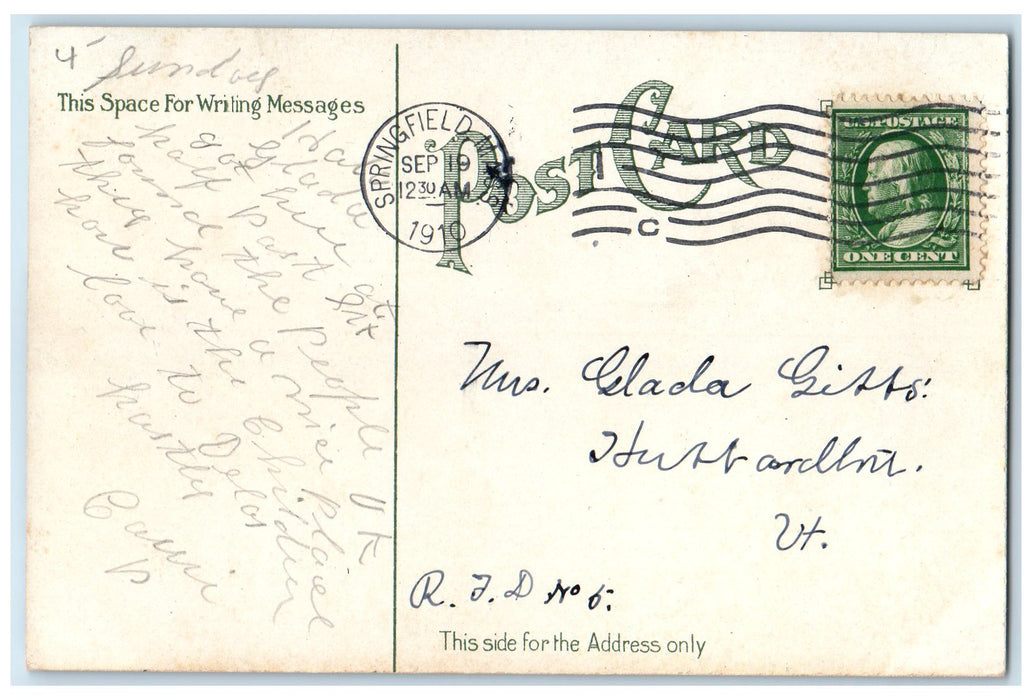 4
Sunday
This Space For Writing Messages
Glada
got here at
half past six
found the people OK
they have a nice place
how is the Children
love to Delos
hastily
POST CARD
SPRINGFIELD
SEP 19
12 30 AM
1910
C
U.S. POSTAGE
ONE CENT
Mrs. Glada Gitts.
Hubbardton.
Vt.
R. F. D No 5.
This side for the Address only